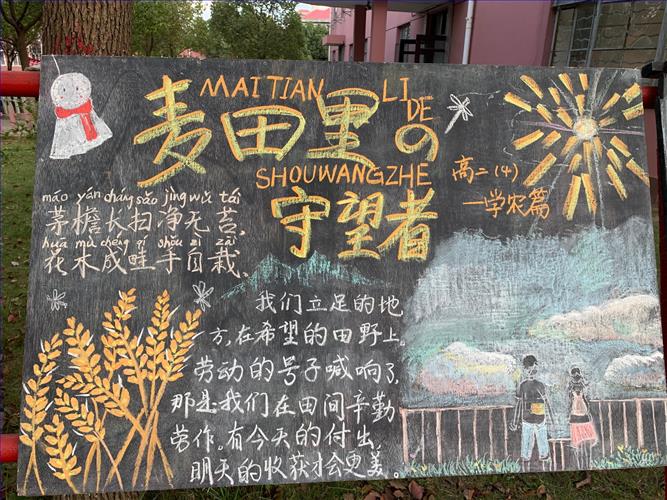 MAI TIAN LI DE
麦田里の
SHOUWANGZHE
守望者
高二(4)
—学农篇
máo yán cháng sǎo jìng wú tái
茅檐长扫净无苔,
huā mù chéng qí shǒu zì zāi
花木成畦手自栽、
我们立足的地
方,在希望的田野上。
劳动的号子喊响了,
那是我们在田间辛勤
劳作。有今天的付出,
明天的收获才会更美。